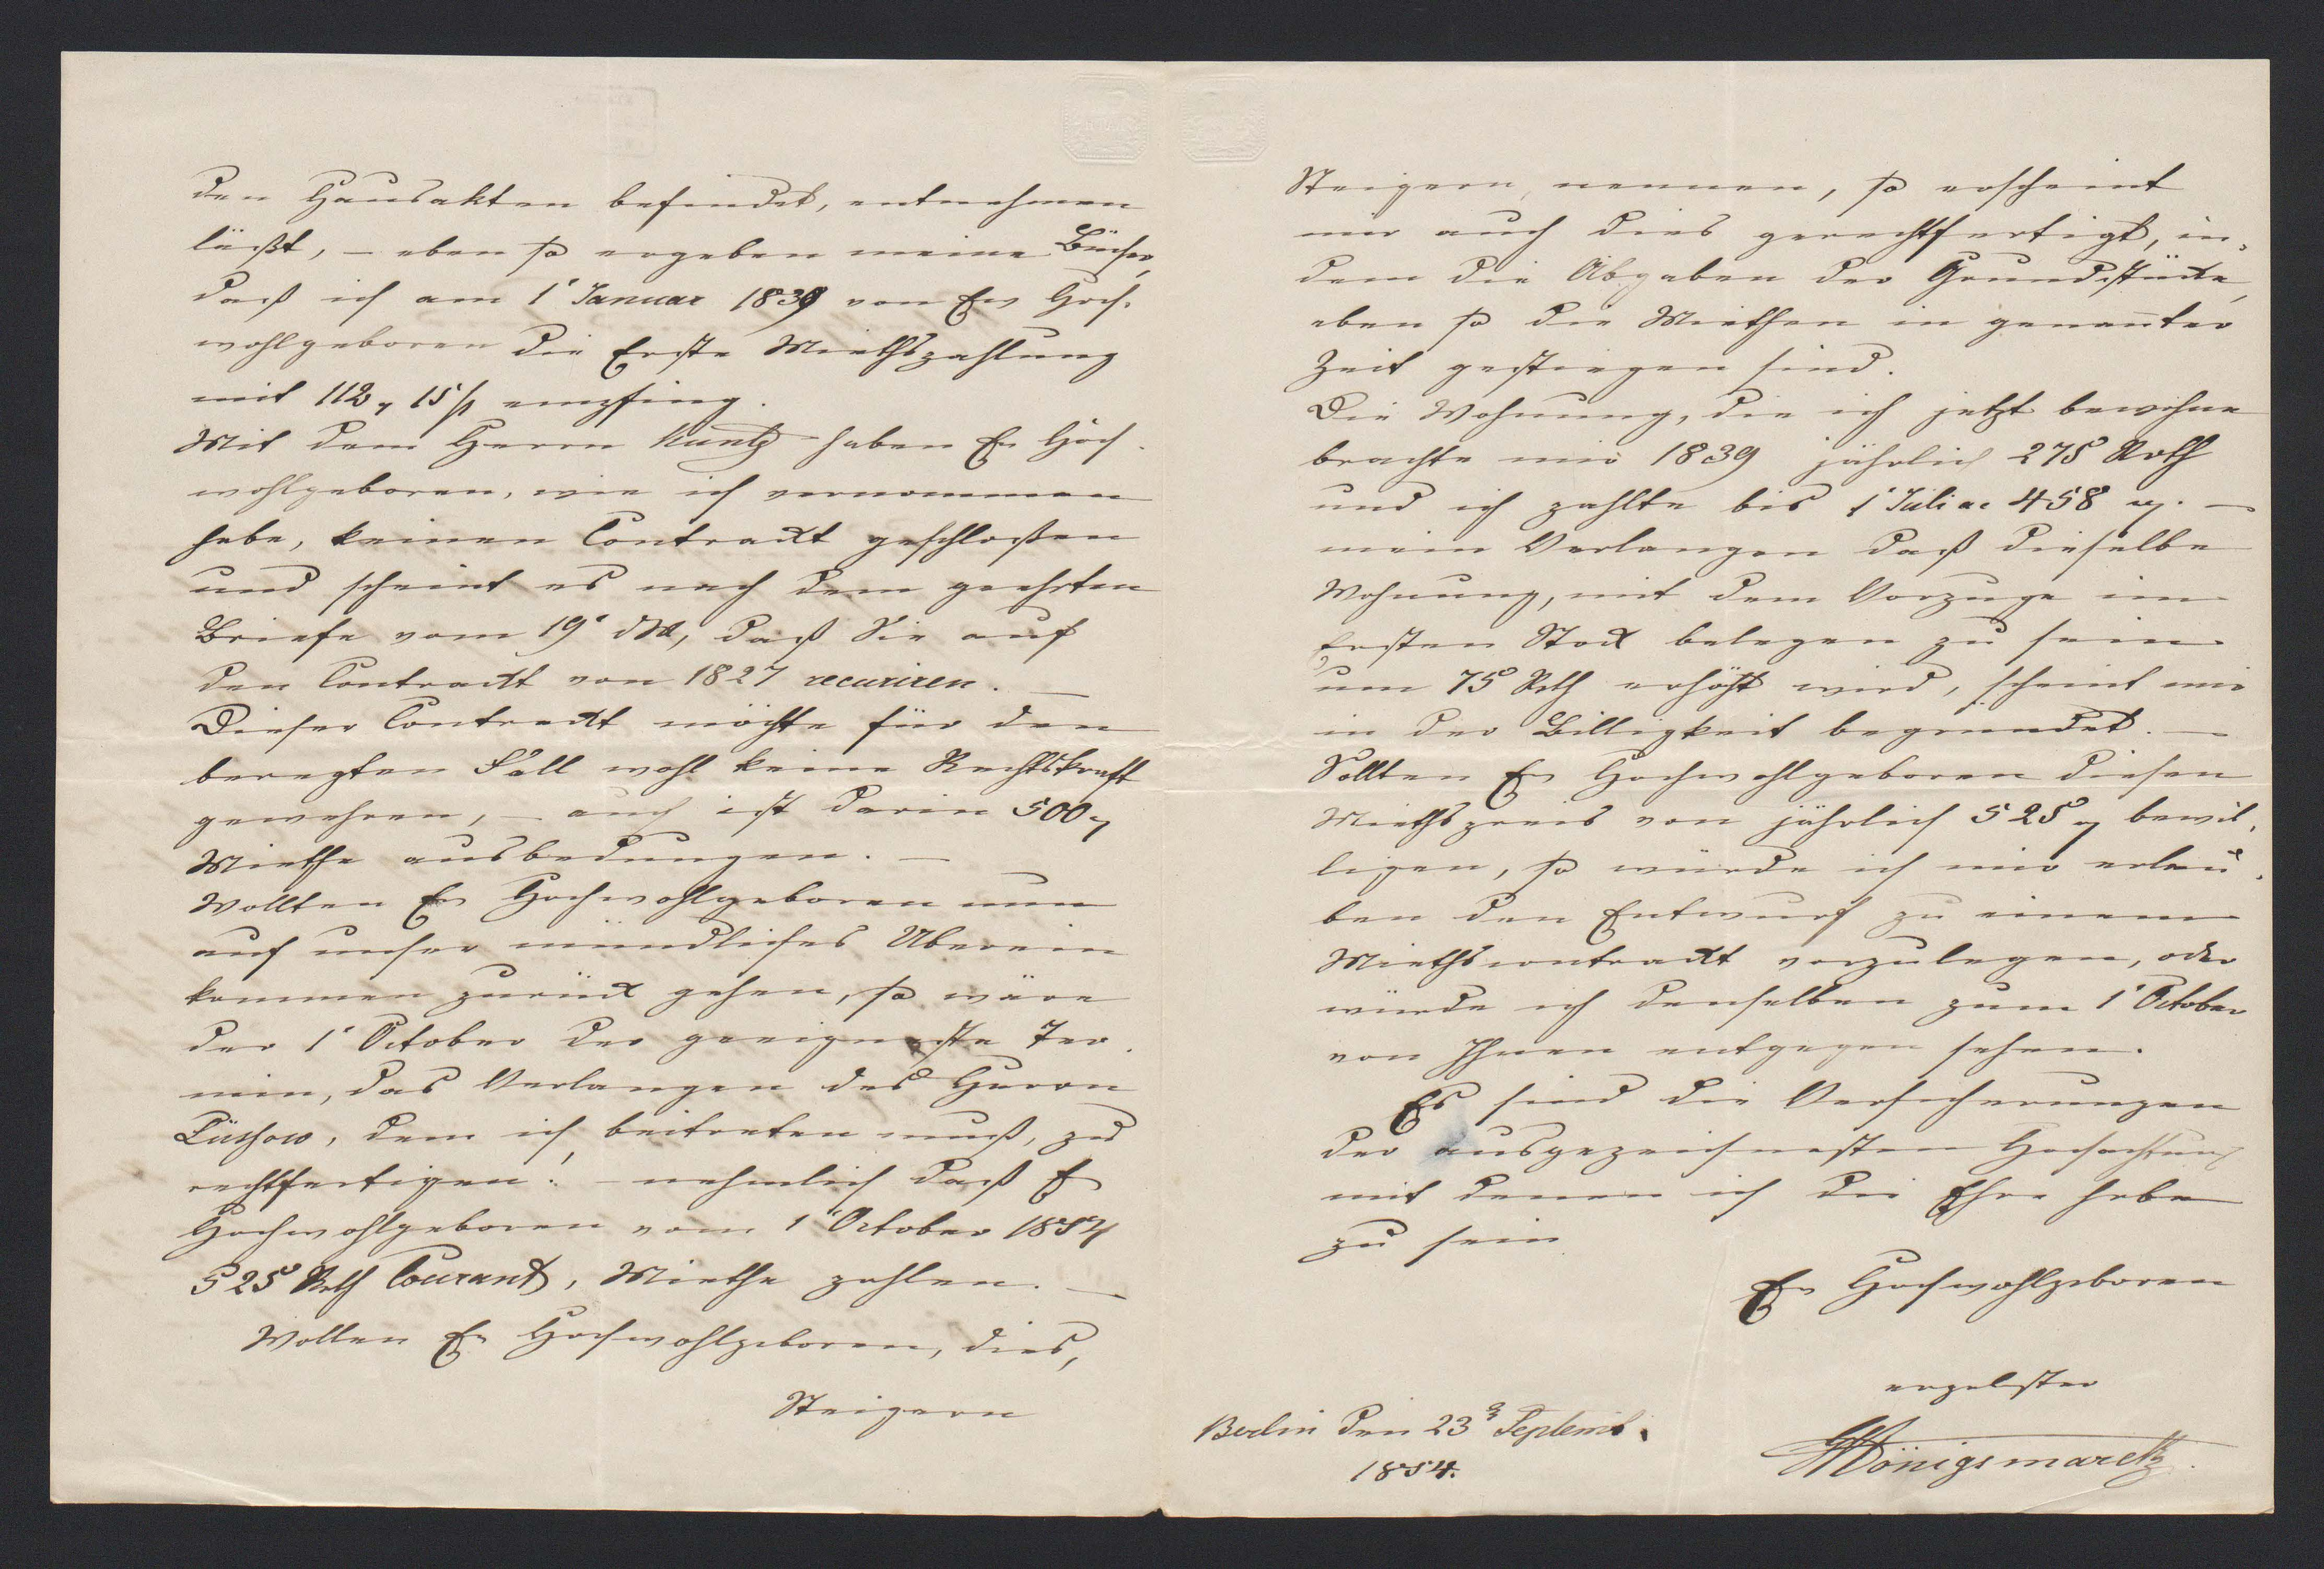 den Hausakten befindet, entnehmen
läßt, – eben so ergeben meine Bücher,
daß ich am 1' Januar 1839 von Ew Hoch-
wohlgeboren die Erste Miethszahlung
mit 112 15 empfing.
Mit dem Herrn Kuntz haben Ew Hoch-
wohlgeboren, wie ich vernommen
habe, keinen Contrackt geschloßen
und scheint es nach dem geehrten
Briefe vom 19' daß Sie auf
den Contrackt von 1827 recuriren. –
Dieser Contrackt möchte für den
beregten Fall wohl keine Rechtskraft
gewehren, – auch ist darin 500
Miethe ausbedungen. –
Wollten Ew Hochwohlgeboren nun
auf unser mündliches Uberein
kommen zurück gehen, so wäre
der 1' October der geeigneste Ter-
min, das Verlangen des Herrn
dem ich beitreten muß, zu
rechtfertigen: – nehmlich daß Ew
Hochwohlgeboren vom 1' October 1854
525 Rth Courant, Miethe zahlen. –
Wollen Ew Hochwohlgeboren, dies,
Steigern
Steigern, nennen, so erscheint
mir auch dies gerechtfertigt, in-
dem die Abgaben der Grundstücke,
eben so die Miethen in genan̄ter
Zeit gestiegen sind.
Die Wohnung, die ich jetzt bewohne
brachte mir 1839 jährlich 275 Rth
und ich zahlte bis 1' Juli ac 458 –
mein Verlangen daß dieselbe
Wohnung, mit dem Vorzuge im
Ersten Stock belegen zu sein
um 75 Rth erhöht wird, scheint mir
in der Billigkeit begründet. –
Sollten Ew Hochwohlgeboren diesen
Miethspreis von jährlich 525 bewil-
ligen, so würde ich mir erlau-
ben den Entwurf zu einem
Miethscontrackt vorzulegen, oder
würde ich denselben zum 1' October
von Ihnen entgegen sehen.
Es sind die Versicherungen
der ausgezeichnesten Hochachtung
mit denen ich die Ehre habe
zu sein
Ew Hochwohlgeboren
ergebster
Berlin den 23' Septemb.
1854.
Königsmarck